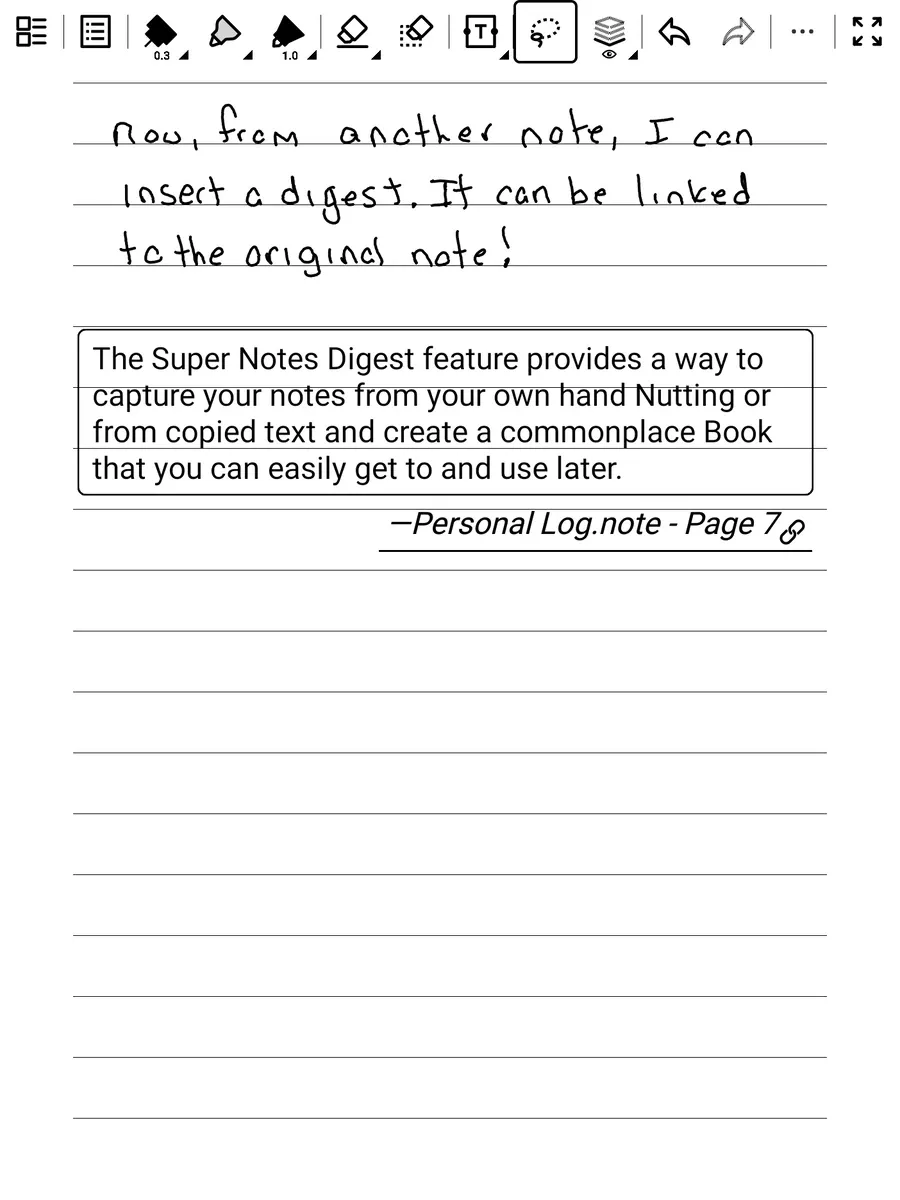 0.3
1.0
T
now, from another note, I can
insert a digest. It can be linked
to the original note!
The Super Notes Digest feature provides a way to
capture your notes from your own hand Nutting or
from copied text and create a commonplace Book
that you can easily get to and use later.
—Personal Log.note - Page 7